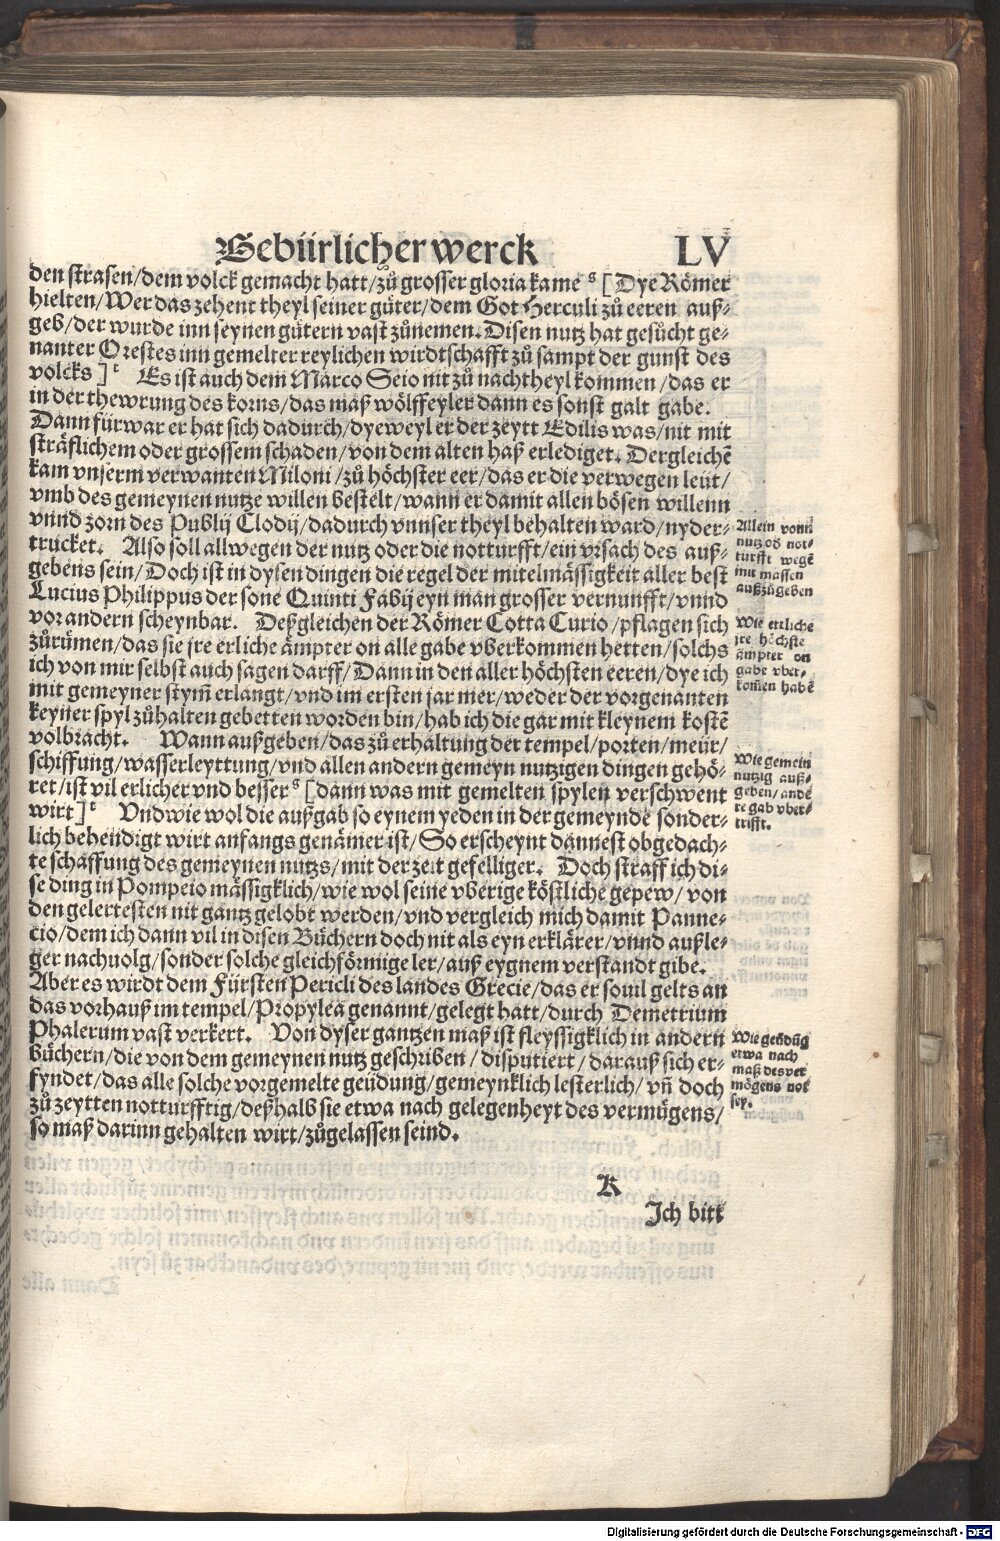 Gebürlicher werck LV
den strasen/dem volck gemacht hatt/zů grosser gloria kame ᵍ [Dye Römer
hielten/Wer das zehent theyl seiner güter/dem Got Herculi zů eeren auß⸗
geb/der wurde inn seynen gütern vast zůnemen. Disen nutz hat gesůcht ge⸗
nanter Orestes inn gemelter reylichen wirdtschafft zů sampt der gunst des
volcks ]ᵗ Es ist auch dem Marco Seio nit zů nachtheyl kommen/das er
in der thewrung des korns/das maß wölffeyler dann es sonst galt gabe.
Dann fürwar er hat sich dadurch/dyeweyl er der zeytt Edilis was/nit mit
sträflichem oder grossem schaden/von dem alten haß erlediget. Dergleichē
kam vnserm verwanten Miloni/zů höchster eer/das er die verwegen leüt/
vmb des gemeynen nutze willen bestelt/wann er damit allen bösen willenn
vnnd zorn des Publij Clodij/dadurch vnnser theyl behalten ward/nyder⸗
trucket. Also soll allwegen der nutz oder die notturfft/ein vrsach des auß⸗
gebens sein/Doch ist in dysen dingen die regel der mitelmässigkeit aller best
Lucius Philippus der sone Quinti Fabij eyn man grosser vernunfft/vnnd
vor andern scheynbar. Deßgleichen der Römer Cotta Curio/pflagen sich
zůrümen/das sie jre erliche ämpter on alle gabe vberkommen hetten/solchs
ich von mir selbst auch sagen darff/Dann in den aller höchsten eeren/dye ich
mit gemeyner stym̄ erlangt/vnd im ersten jar mer/weder der vorgenanten
keyner spyl zůhalten gebetten worden bin/hab ich die gar mit kleynem kostē
volbracht. Wann außgeben/das zů erhaltung der tempel/porten/meür/
schiffung/wasserleyttung/vnd allen andern gemeyn nutzigen dingen gehö⸗
ret/ist vil erlicher vnd besser ᵍ [dann was mit gemelten spylen verschwent
wirt]ᵗ Vndwie wol die außgab so eynem yeden in der gemeynde sonder⸗
lich behendigt wirt anfangs genämer ist/So erscheynt dannest obgedach⸗
te schaffung des gemeynen nutzs/mit der zeit gefelliger. Doch straff ich di⸗
se ding in Pompeio mässigklich/wie wol seine vberige köstliche gepew/von
den gelertesten nit gantz gelobt werden/vnd vergleich mich damit Panne⸗
cio/dem ich dann vil in disen Büchern doch nit als eyn erklärer/vnnd außle⸗
ger nachuolg/sonder solche gleichförmige ler/auß eygnem verstandt gibe.
Aber es wirdt dem Fürsten Pericli des landes Grecie/das er souil gelts an
das vorhauß im tempel/Propylea genannt/gelegt hatt/durch Demetrium
Phalerum vast verkert. Von dyser gantzen maß ist fleyssigklich in andern
Büchern/die von dem gemeynen nutz geschriben/disputiert/darauß sich er⸗
fyndet/das alle solche vorgemelte geüdung/gemeynklich lesterlich/vn̄ doch
zů zeytten notturfftig/deßhalb sie etwa nach gelegenheyt des vermügens/
so maß darinn gehalten wirt/zůgelassen seind.
Allein vonn
nutz oď not⸗
turfft wegē
mit massen
außzůgeben
Wie ettliche
jre höchste
ämpter on
gabe vber⸗
kom̄en habē
Wie gemein
nutzig auß⸗
geben/ande
re gab vber⸗
trifft.
Wie geüdūg
etwa nach
maß des ver
mögens not
sey.
K
Ich bitt
Digitalisierung gefördert durch die Deutsche Forschungsgemeinschaft - DFG